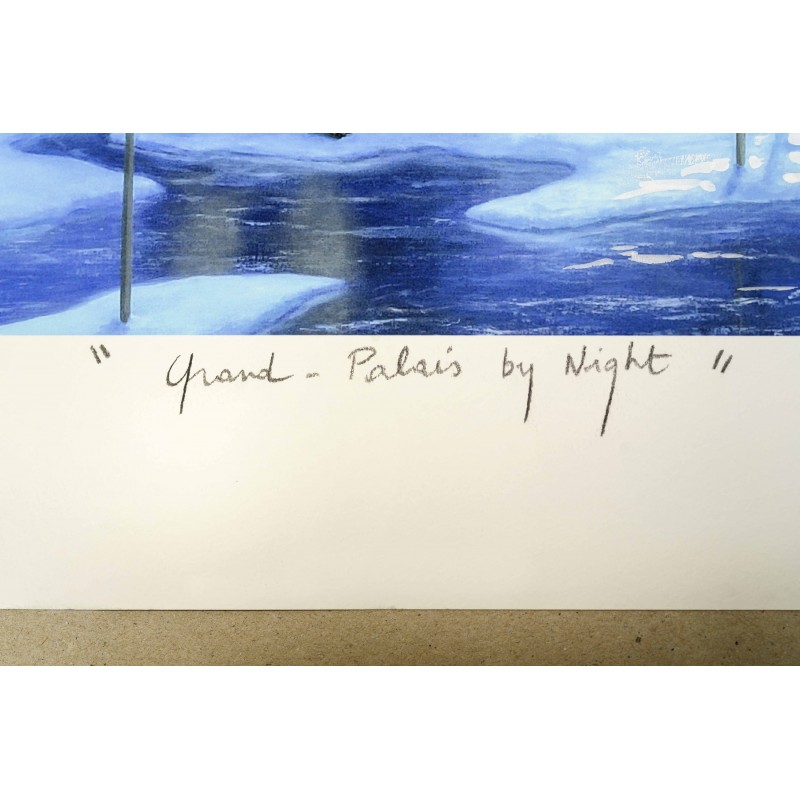 " Grand - Palais by Night "